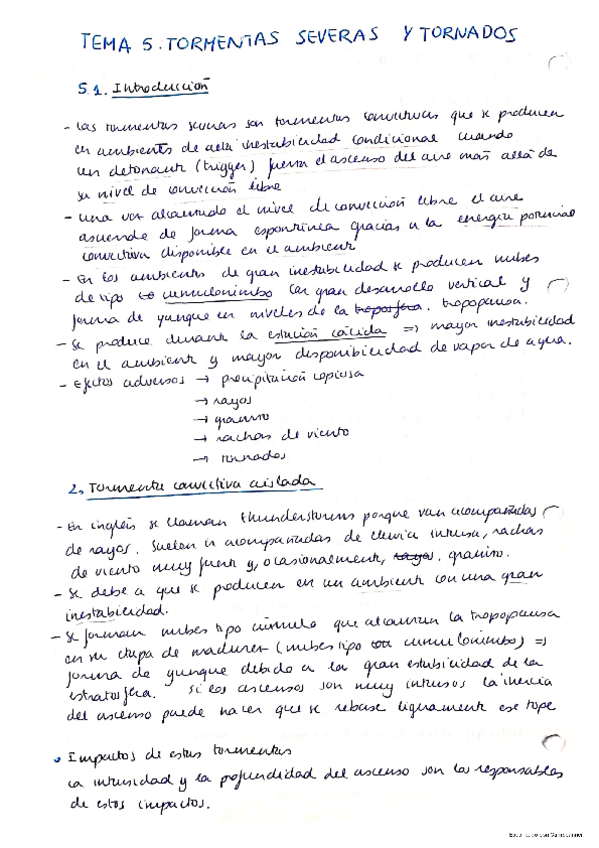 TEMA 5. TORMENTAS SEVERAS Y TORNADOS
5.1. Introducción
- Las tormentas severas son tormentas convectivas que se producen
en ambientes de alta inestabilidad condicional cuando
un detonante (trigger) fuerza el ascenso del aire más allá de
su nivel de convección libre
- Una vez alcanzado el nivel de convección libre el aire
asciende de forma espontánea gracias a la energía potencial
convectiva disponible en el ambiente
- En los ambientes de gran inestabilidad se producen nubes
de tipo cumulonimbo con gran desarrollo vertical y
forma de yunque en niveles de la troposfera. tropopausa.
- Se produce durante la estación cálida => mayor inestabilidad
en el ambiente y mayor disponibilidad de vapor de agua.
- Efectos adversos → precipitación copiosa
→ rayos
→ granizo
→ rachas de viento
→ tornados
2. Tormenta convectiva aislada
- En inglés se llaman thunderstorms porque van acompañadas
de rayos. Suelen ir acompañadas de lluvia intensa, rachas
de viento muy fuerte y, ocasionalmente, rayos. granizo.
- Se debe a que se producen en un ambiente con una gran
inestabilidad.
- Se forman nubes tipo cúmulo que alcanzan la tropopausa
en su etapa de madurez (nubes tipo cumulonimbo) =>
forma de yunque debido a la gran estabilidad de la
estratosfera. Si los ascensos son muy intensos la inercia
del ascenso puede hacer que se rebase ligeramente ese tope
• Impactos de estas tormentas
La intensidad y la profundidad del ascenso son las responsables
de estos impactos.